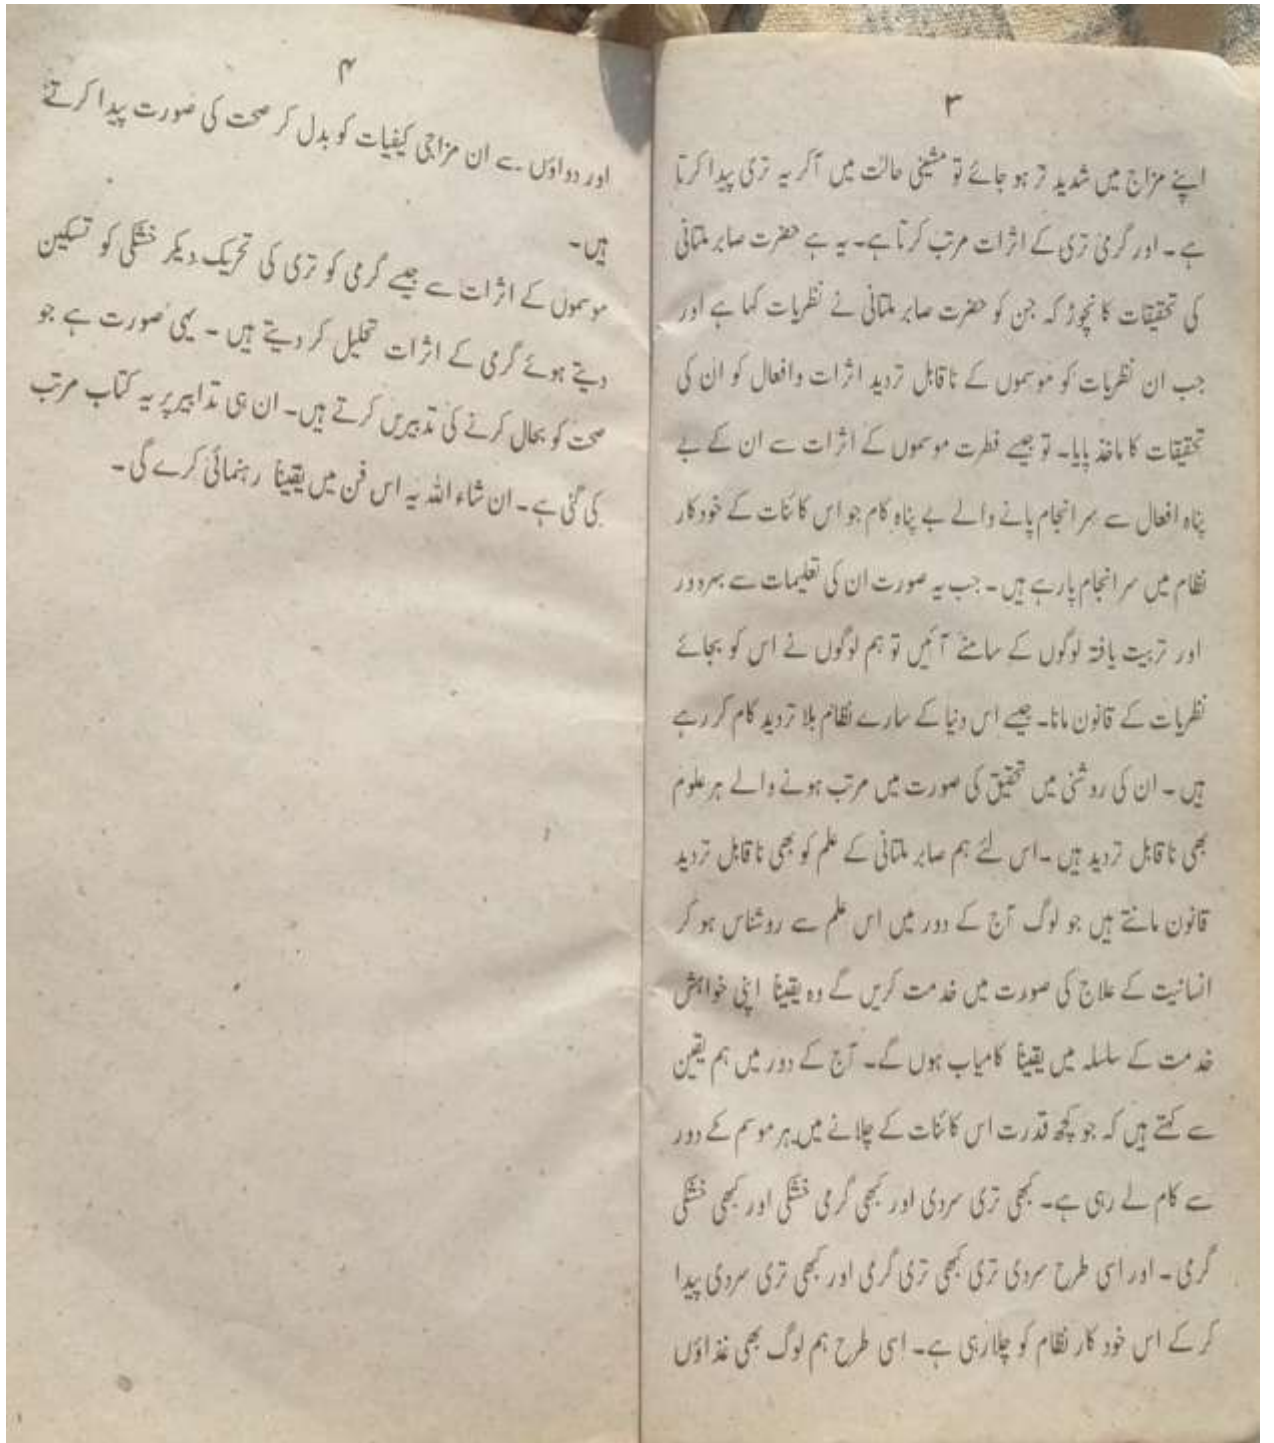 ۳
اپنے مزاج میں شدید تر ہو جائے تو مشینی حالت میں آکر یہ تری پیدا کرتا
ہے۔ اور گرمی تری کے اثرات مرتب کرتا ہے۔ یہ ہے حضرت صابر ملتانی
کی تحقیقات کا نچوڑ کہ جن کو حضرت صابر ملتانی نے نظریات کہا ہے اور
جب ان نظریات کو موسموں کے ناقابل تردید اثرات وافعال کو ان کی
تحقیقات کا ماخذ پایا۔ تو جیسے فطرت موسموں کے اثرات سے ان کے بے
پناہ افعال سے سر انجام پانے والے بے پناہ کام جو اس کائنات کے خودکار
نظام میں سر انجام پارہے ہیں۔ جب یہ صورت ان کی تعلیمات سے بہرہ ور
اور تربیت یافتہ لوگوں کے سامنے آئیں تو ہم لوگوں نے اس کو بجائے
نظریات کے قانون مانا۔ جیسے اس دنیا کے سارے نظام بلا تردید کام کر رہے
ہیں۔ ان کی روشنی میں تحقیق کی صورت میں مرتب ہونے والے ہر علوم
بھی ناقابل تردید ہیں۔ اس لئے ہم صابر ملتانی کے علم کو بھی ناقابل تردید
قانون مانتے ہیں جو لوگ آج کے دور میں اس علم سے روشناس ہو کر
انسانیت کے علاج کی صورت میں خدمت کریں گے وہ یقیناً اپنی خواہش
خدمت کے سلسلہ میں یقیناً کامیاب ہوں گے۔ آج کے دور میں ہم یقین
سے کہتے ہیں کہ جو کچھ قدرت اس کائنات کے چلانے میں ہر موسم کے دور
سے کام لے رہی ہے۔ کبھی تری سردی اور کبھی گرمی خشکی اور کبھی خشکی
گرمی۔ اور اسی طرح سردی تری کبھی تری گرمی اور کبھی تری سردی پیدا
کر کے اس خود کار نظام کو چلارہی ہے۔ اسی طرح ہم لوگ بھی غذاؤں
۴
اور دواؤں سے ان مزاجی کیفیات کو بدل کر صحت کی صورت پیدا کرتے
ہیں۔
موسموں کے اثرات سے جیسے گرمی کو تری کی تحریک دیکر خشکی کو تسکین
دیتے ہوئے گرمی کے اثرات تحلیل کر دیتے ہیں۔ یہی صورت ہے جو
صحت کو بحال کرنے کی تدبیریں کرتے ہیں۔ ان ہی تدابیر پر یہ کتاب مرتب
کی گئی ہے۔ ان شاء اللہ یہ اس فن میں یقیناً رہنمائی کرے گی۔